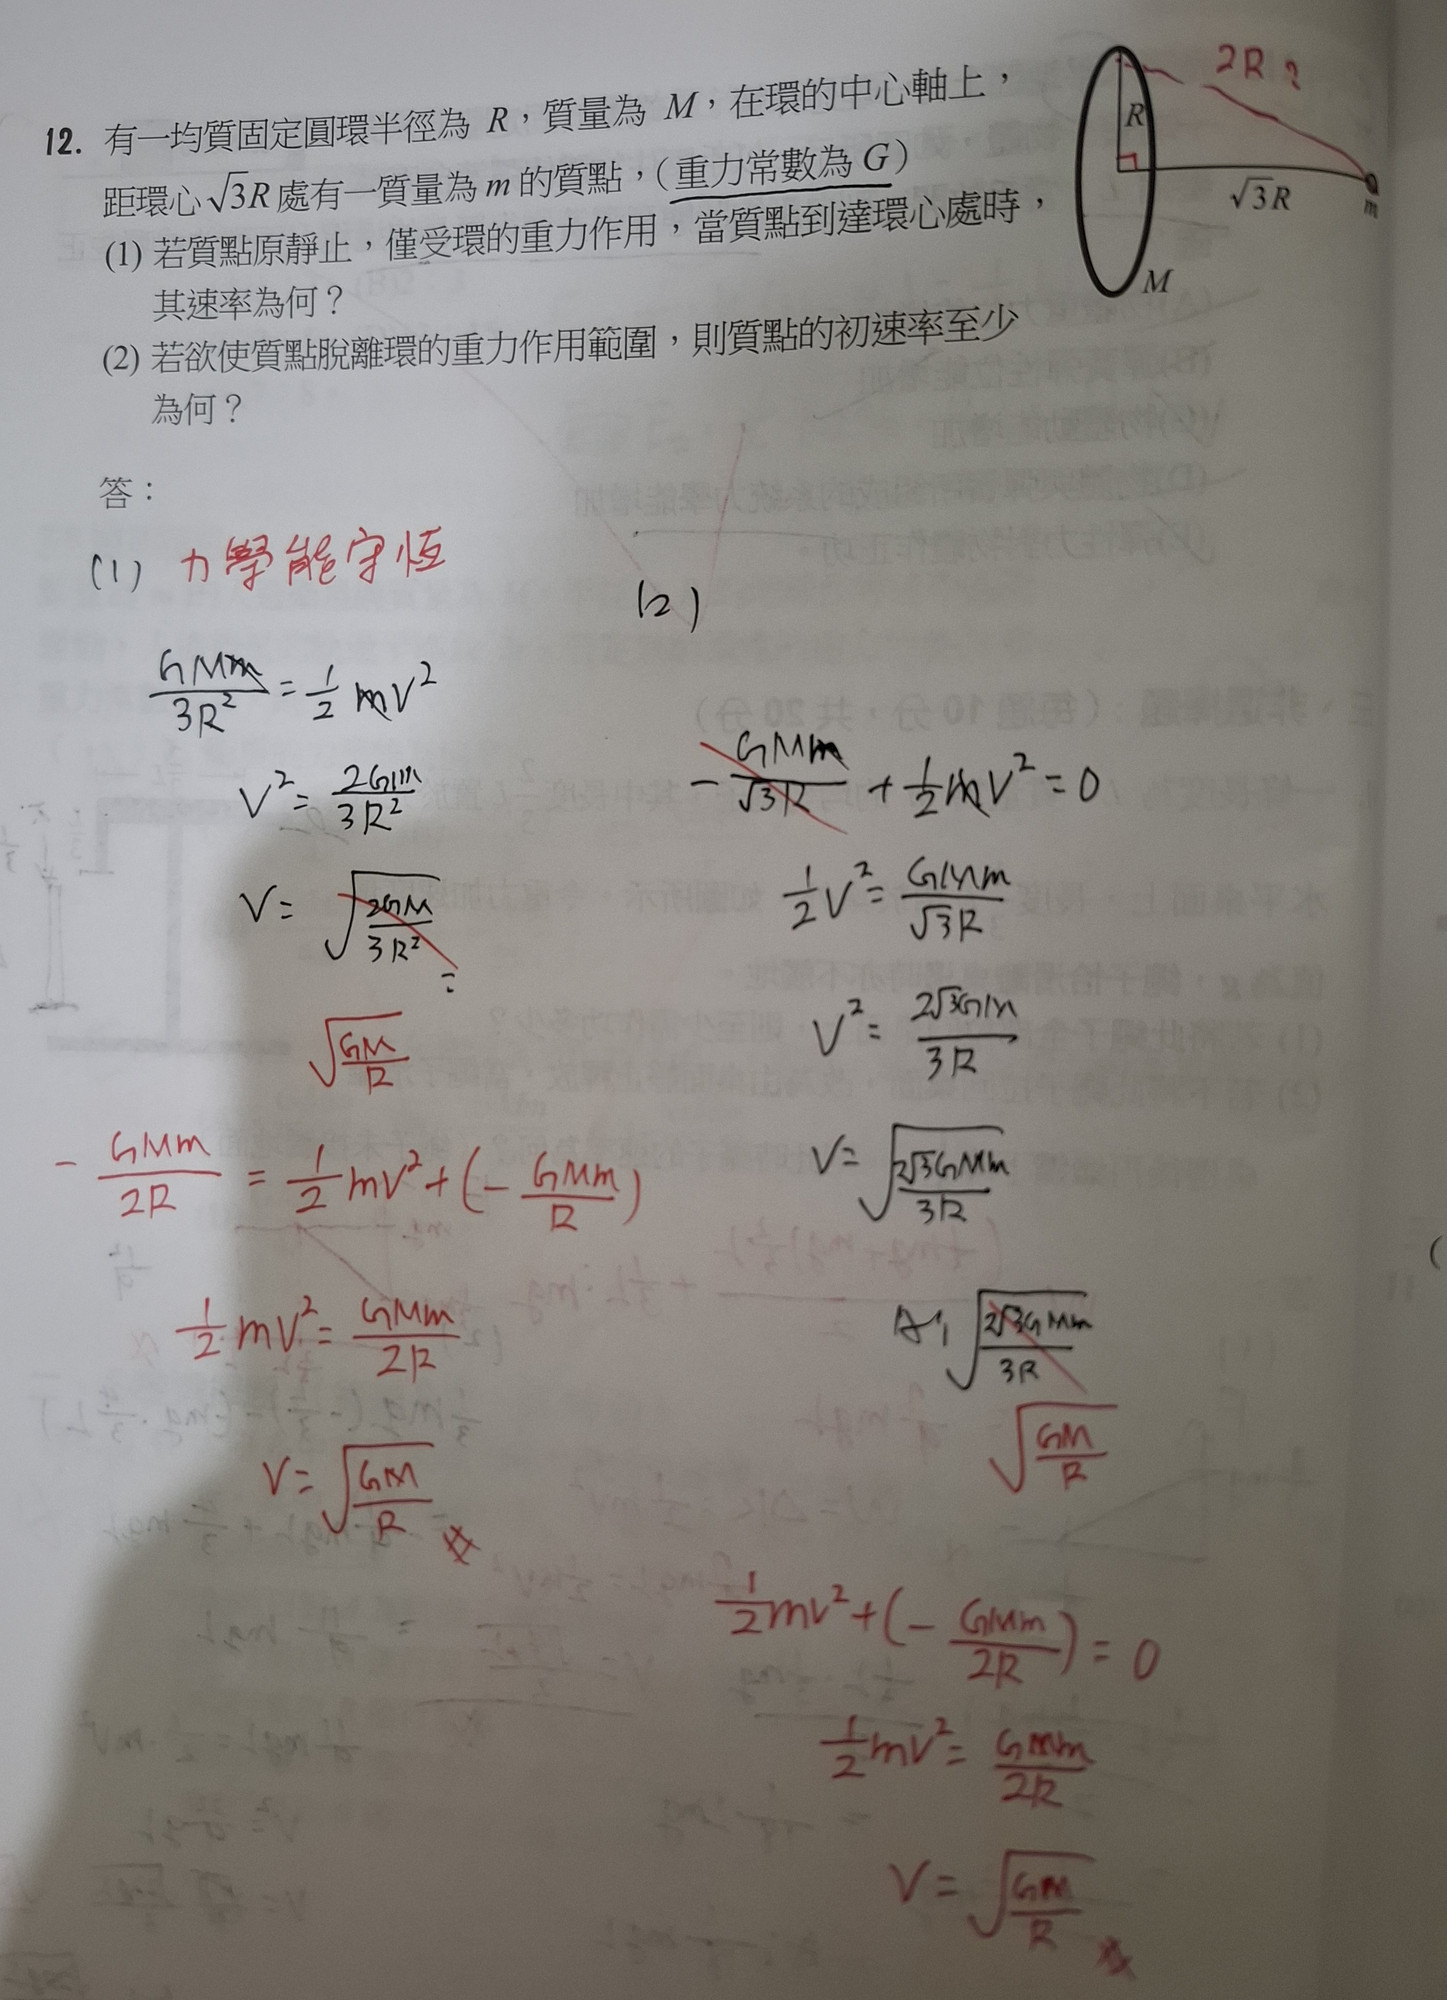 12. 有一均質固定圓環半徑為 R，質量為 M，在環的中心軸上，
距環心√3R處有一質量為m的質點，(重力常數為G)
(1) 若質點原靜止，僅受環的重力作用，當質點到達環心處時，
其速率為何？
(2) 若欲使質點脫離環的重力作用範圍，則質點的初速率至少
為何？
2R ?
R
√3R
m
M
答：
(1) 力學能守恆
GMm/3R² = 1/2 mV²
V² = 2GM/3R²
V = √(2GM/3R²)
=
√(GM/R)
- GMm/2R = 1/2 mV² + (- GMm/R)
1/2 mV² = GMm/2R
V = √(GM/R) #
(2)
- GMm/√3R + 1/2 mV² = 0
1/2 V² = GMm/√3R
V² = 2√3GM/3R
V = √(2√3GMm/3R)
A: √(2√3GMm/3R)
√(GM/R)
1/2 mV² + (- GMm/2R) = 0
1/2 mV² = GMm/2R
V = √(GM/R) #